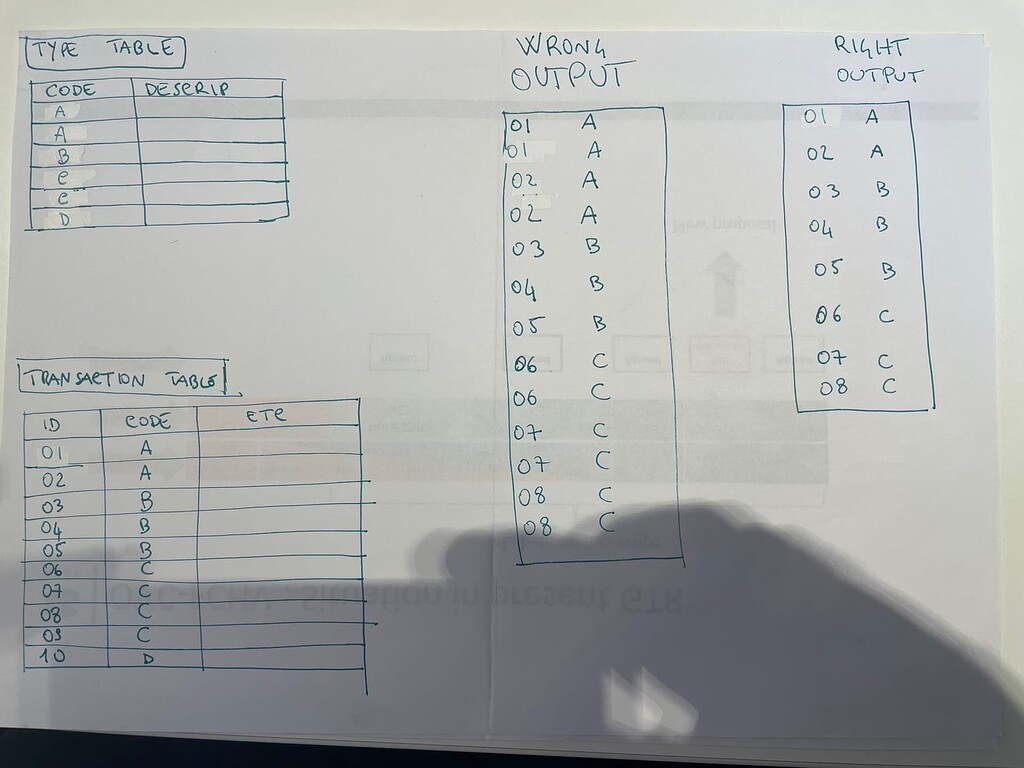 TYPE TABLE
CODE DESCRIP
A
A
B
C
C
D
TRANSACTION TABLE
ID CODE ETC
01 A
02 A
03 B
04 B
05 B
06 C
07 C
08 C
09 C
10 D
WRONG
OUTPUT
01 A
01 A
02 A
02 A
03 B
04 B
05 B
06 C
06 C
07 C
07 C
08 C
08 C
RIGHT
OUTPUT
01 A
02 A
03 B
04 B
05 B
06 C
07 C
08 C
New proposal
Situation in present GTR